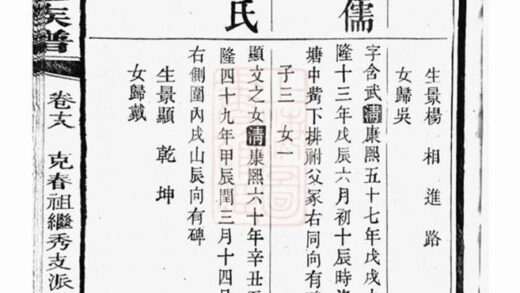 生景楊 相 進 路
女歸吳
儒
字含武清康熙五十七年戊戌
隆十三年戊辰六月初十辰時
塘中觜下排祔父冢右同向有
子三 女一
氏
顯文之女清康熙六十年辛丑
隆四十九年甲辰閏三月十四
右側圍內戌山辰向有碑
生景顯 乾 坤
女歸戴
族譜 卷 克春祖繼秀支派